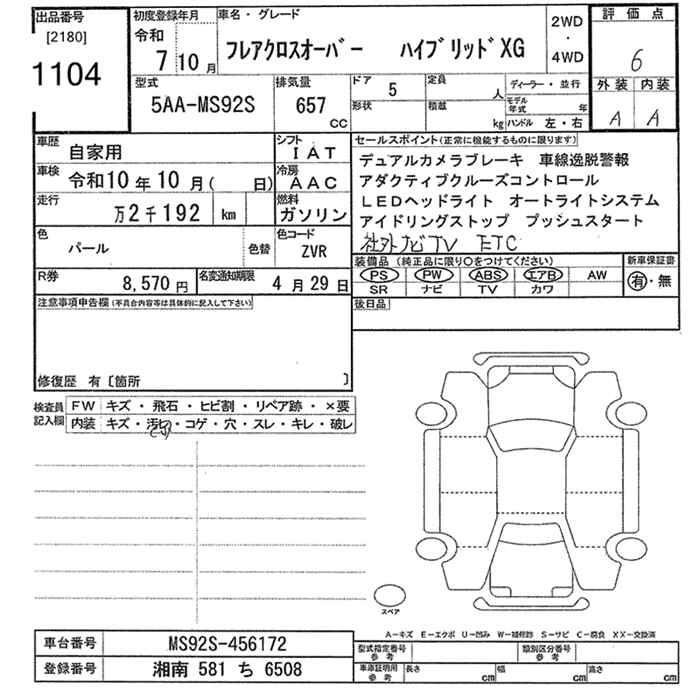 出品番号 初度登録年月 車名・グレード 2WD・4WD 評価点
[2180] 令和
1104 7 10月 フレアクロスオーバー ハイブリッドXG 6
型式 排気量 ドア 5 定員 人 ディーラー・並行 外装 内装
5AA-MS92S 657 CC 形状 積載 kg モデル年式 年 A A
ハンドル 左・右
車歴 自家用 シフト IAT セールスポイント(正常に機能するものに限ります)
車検 令和10年10月( 日) 冷房 AAC デュアルカメラブレーキ 車線逸脱警報
アダクティブクルーズコントロール
走行 万2千192 km 燃料 ガソリン LEDヘッドライト オートライトシステム
アイドリングストップ プッシュスタート
色 パール 色替 色コード ZVR 社外ナビTV ETC
装備品(純正品に限り○をつけてください) 新車保証書
R券 8,570円 名変通知期限 4月29日 PS PW ABS エアB AW 有・無
SR ナビ TV カワ
注意事項申告欄(不具合内容等は具体的に記入して下さい) 後日品
修復歴 有〔箇所 〕
検査員記入欄 FW キズ・飛石・ヒビ割・リペア跡・×要
内装 キズ・汚れ・コゲ・穴・スレ・キレ・破レ
スペア
A-キズ E-エクボ U-凹み W-補修跡 S-サビ C-腐食 XX-交換済
車台番号 MS92S-456172 型式指定番号参考 類別区分番号参考
登録番号 湘南 581 ち 6508 車庫証明用参考 長さ cm 幅 cm 高さ cm